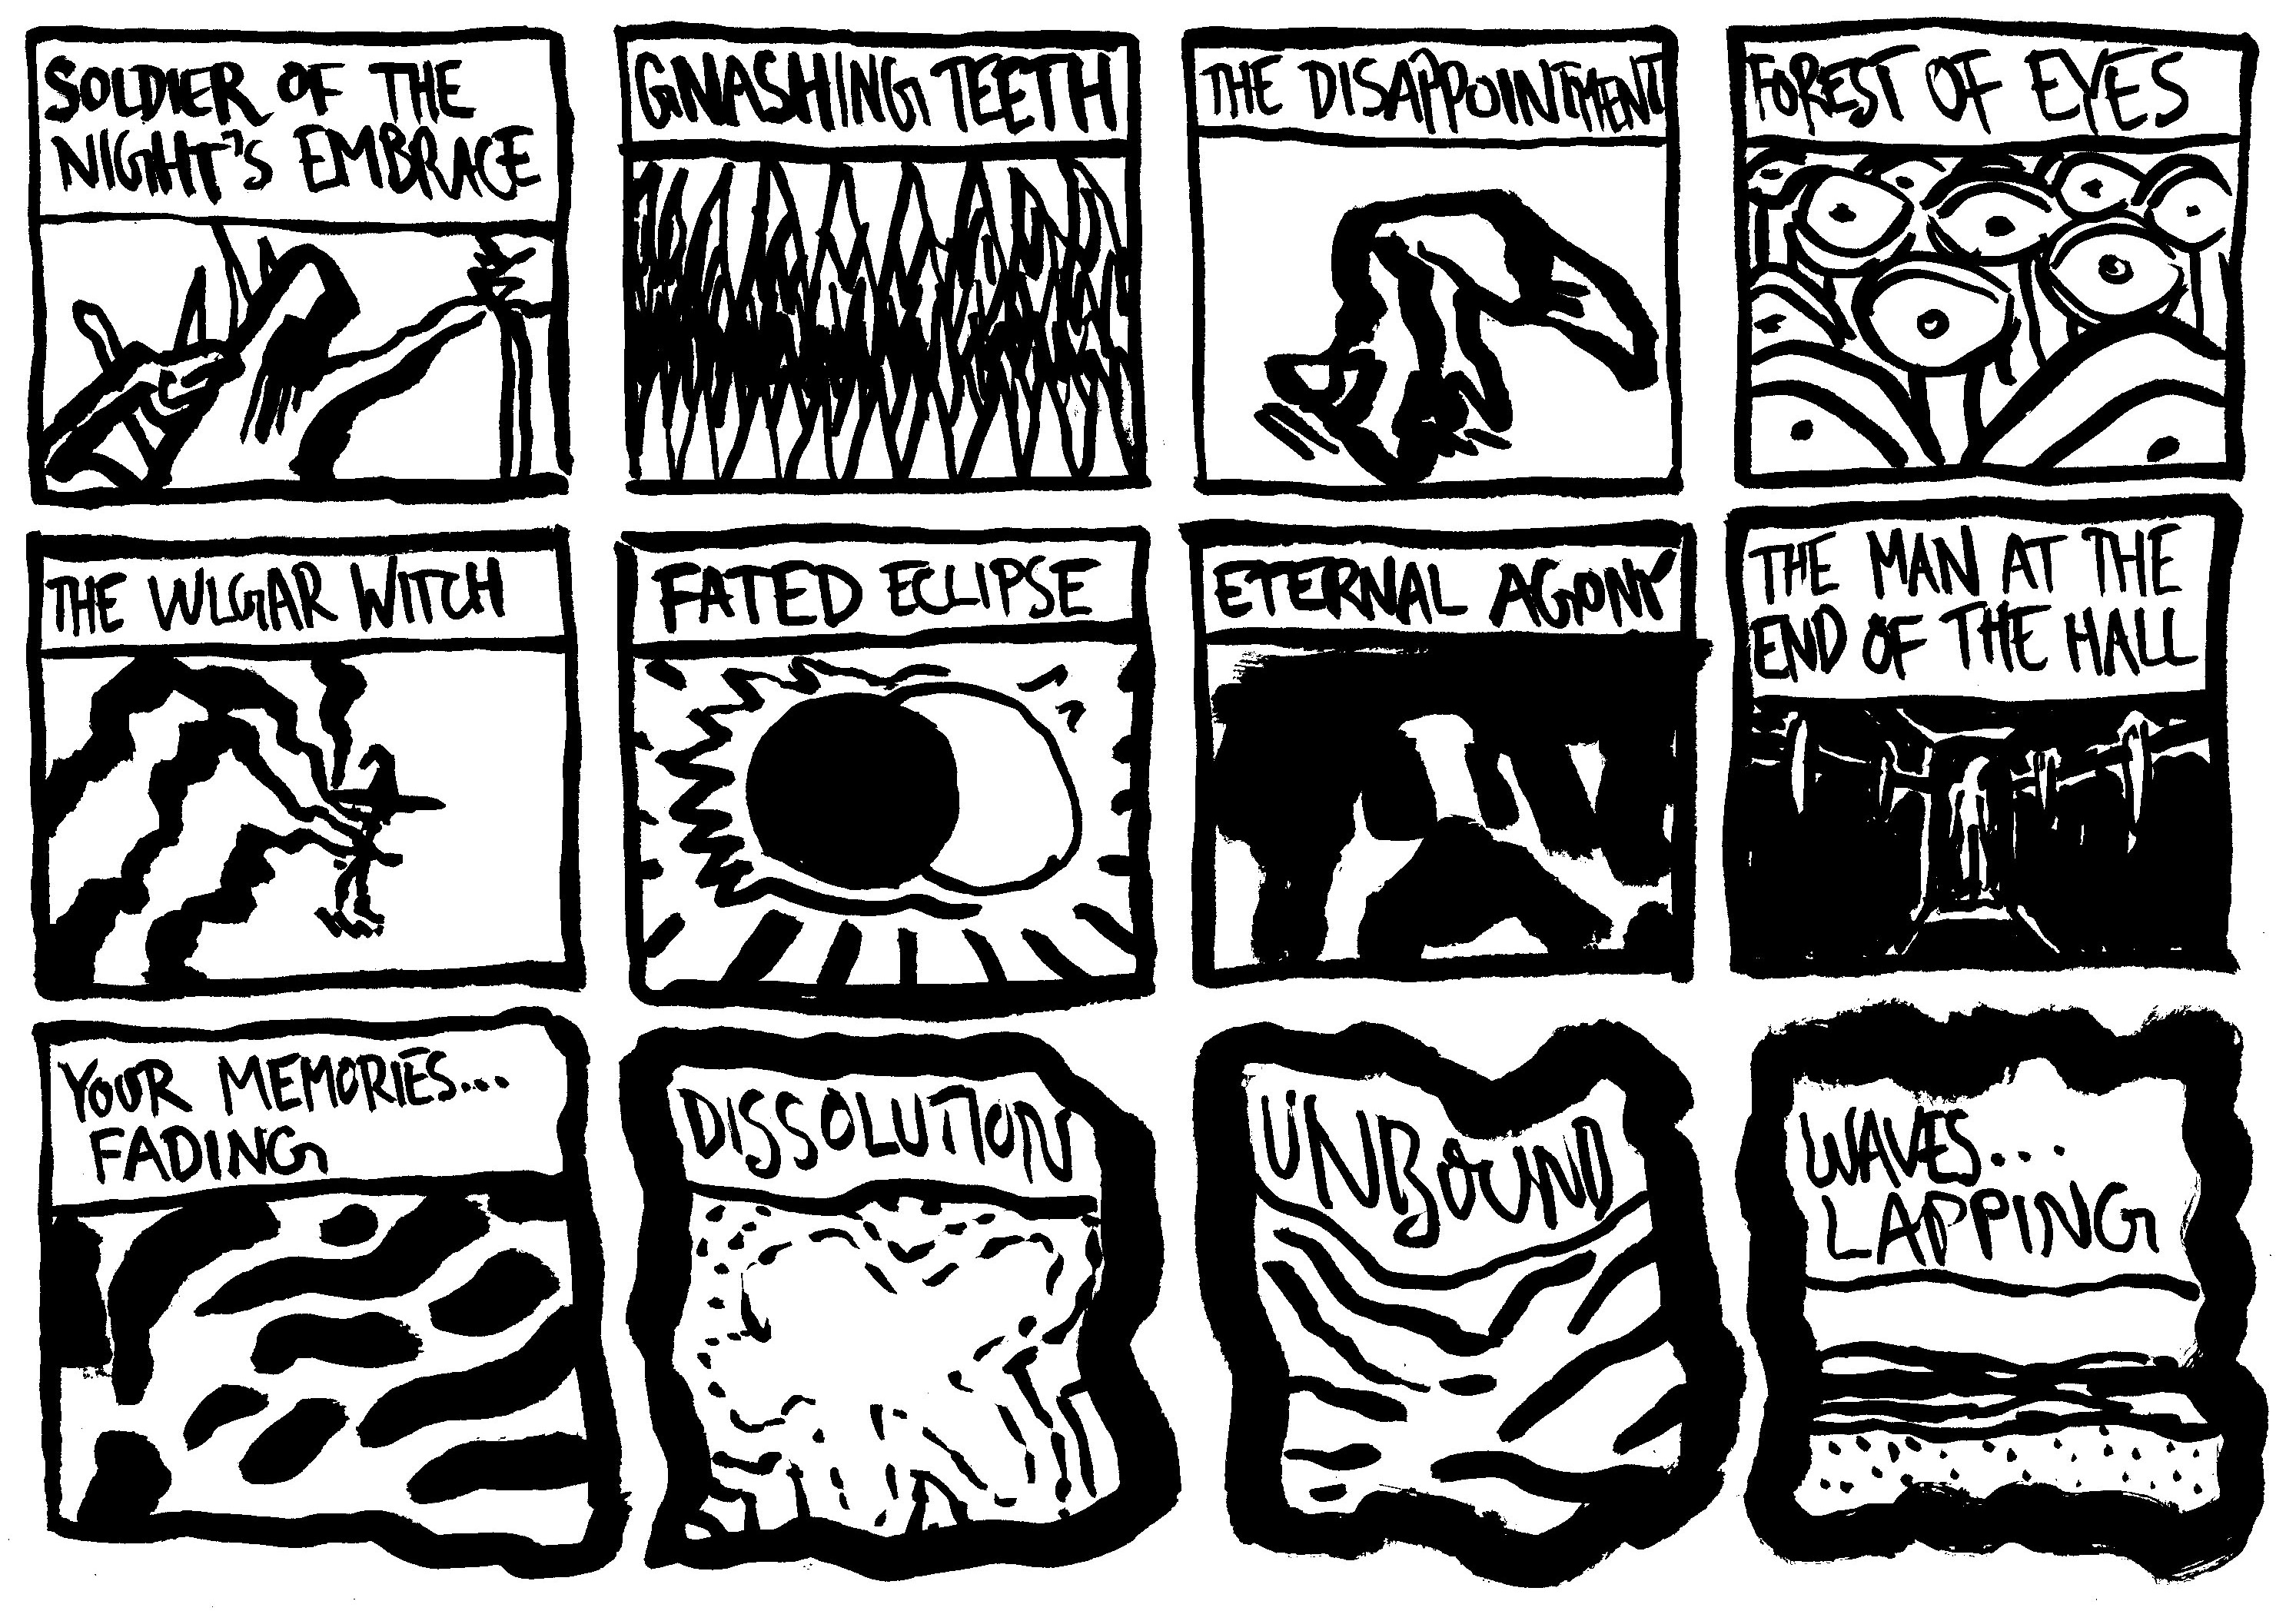 SOLDIER OF THE
NIGHT'S EMBRACE
GNASHING TEETH
THE DISAPPOINTMENT
FOREST OF EYES
THE VULGAR WITCH
FATED ECLIPSE
ETERNAL AGONY
THE MAN AT THE
END OF THE HALL
YOUR MEMORIES...
FADING
DISSOLUTION
UNBOUND
WAVES...
LAPPING